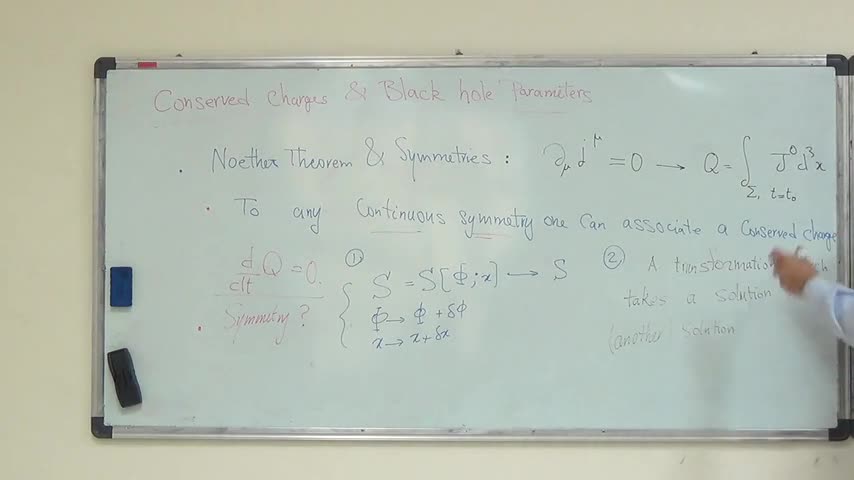 Conserved charges & Black hole Parameters
• Noether Theorem & Symmetries : ∂_μ j^μ = 0 → Q = ∫_{Σ, t=t₀} J⁰ d³x
• To any Continuous symmetry one Can associate a Conserved charge
d/dt Q = 0.
• Symmetry?
① S = S[Φ; x] → S
Φ → Φ + δΦ
x → x + δx
② A transformation
takes a solution
(another) solution